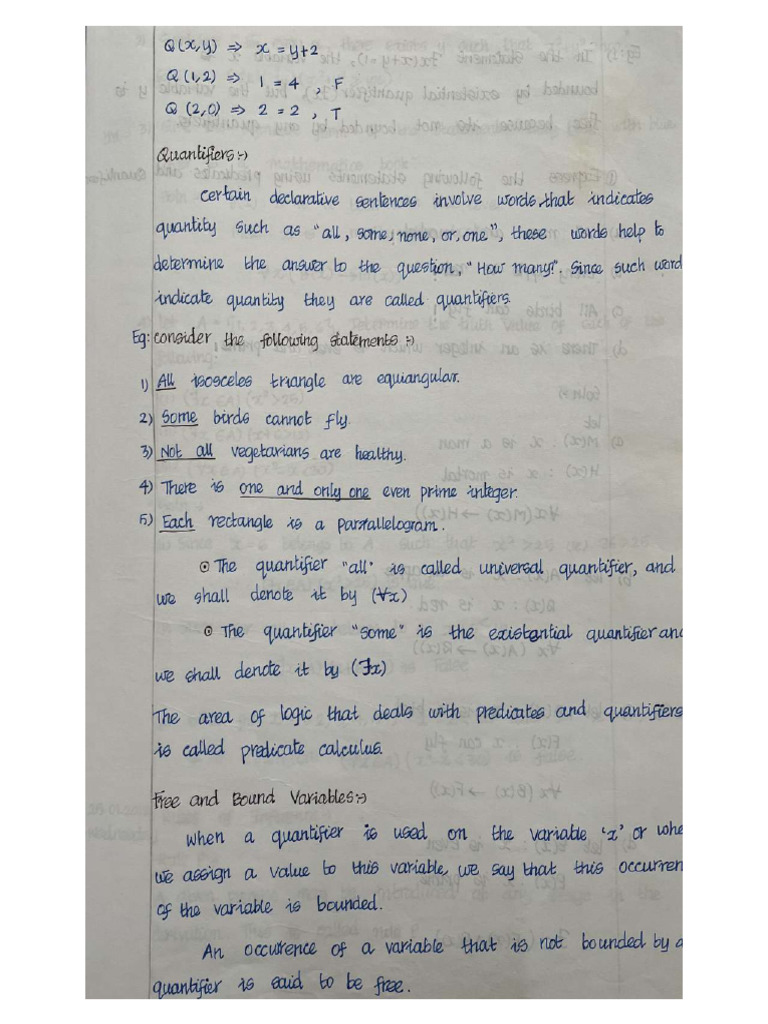 Q(x,y) ⇒ x = y+2
Q(1,2) ⇒ 1 = 4 , F
Q (2,0) ⇒ 2 = 2 , T
Quantifiers:-)
certain declarative sentences involve words that indicates
quantity such as "all, some, none, or, one", these words help to
determine the answer to the question, "How many?". Since such word
indicate quantity they are called quantifiers.
Eg: consider the following statements :-)
1) All isosceles triangle are equiangular.
2) Some birds cannot fly.
3) Not all vegetarians are healthy.
4) There is one and only one even prime integer.
5) Each rectangle is a parallelogram.
⊙ The quantifier "all" is called universal quantifier, and
we shall denote it by (∀x)
⊙ The quantifier "some" is the existantial quantifier and
we shall denote it by (∃x)
The area of logic that deals with predicates and quantifiers
is called predicate calculus.
Free and Bound Variables:-)
when a quantifier is used on the variable 'x' or whe
we assign a value to this variable, we say that this occurren
of the variable is bounded.
An occurence of a variable that is not bounded by a
quantifier is said to be free.